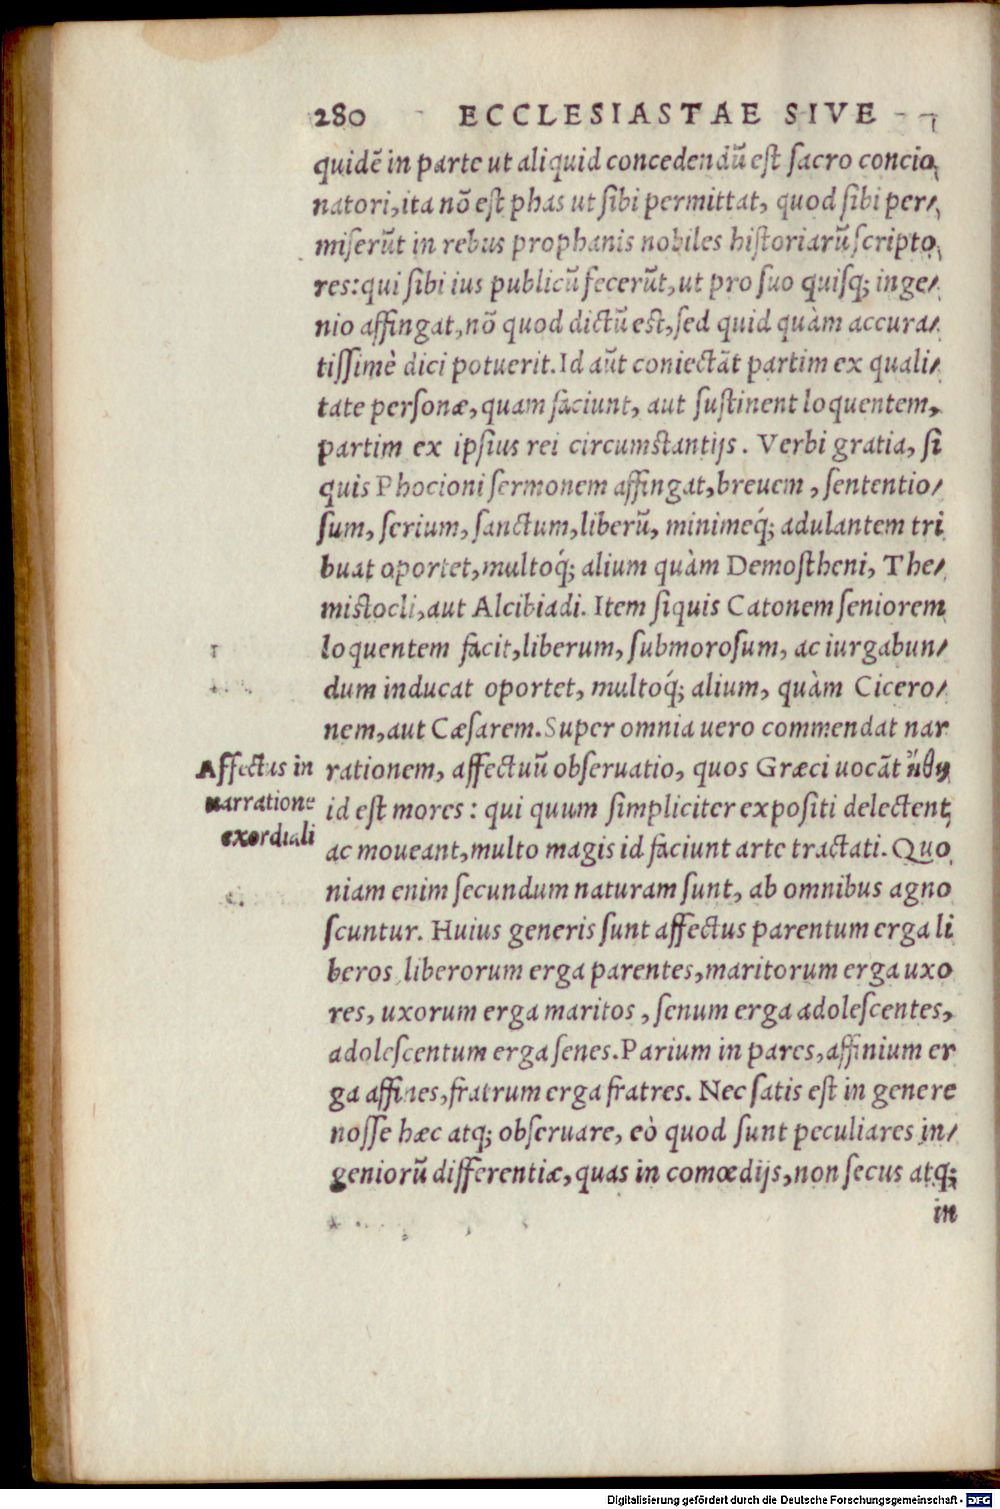 280 ECCLESIASTAE SIVE
quidē in parte ut aliquid concedendū est sacro concio,
natori, ita nō est phas ut sibi permittat, quod sibi per/,
miserūt in rebus prophanis nobiles historiarū scripto,
res: qui sibi ius publicū fecerūt, ut pro suo quisq; inge/
nio affingat, nō quod dictū est, sed quid quàm accura/
tissimè dici potuerit. Id aūt coniectāt partim ex quali/
tate personæ, quam faciunt, aut sustinent loquentem,
partim ex ipsius rei circumstantijs. Verbi gratia, si
quis Phocioni sermonem affingat, breuem, sententio/
sum, serium, sanctum, liberū, minimeq́; adulantem tri
buat oportet, multoq́; alium quàm Demostheni, The/
mistocli, aut Alcibiadi. Item siquis Catonem seniorem
loquentem facit, liberum, submorosum, ac iurgabun/
dum inducat oportet, multoq́; alium, quàm Cicero/
nem, aut Cæsarem. Super omnia uero commendat nar
Affectus in
narratione
exordiali
rationem, affectuū obseruatio, quos Græci uocāt ἤθη
id est mores: qui quum simpliciter expositi delectent,
ac moueant, multo magis id faciunt arte tractati. Quo
niam enim secundum naturam sunt, ab omnibus agno
scuntur. Huius generis sunt affectus parentum erga li
beros, liberorum erga parentes, maritorum erga uxo
res, uxorum erga maritos, senum erga adolescentes,
adolescentum erga senes. Parium in pares, affinium er
ga affines, fratrum erga fratres. Nec satis est in genere
nosse hæc atq; obseruare, eò quod sunt peculiares in/
geniorū differentiæ, quas in comœdijs, non secus atq;
in
Digitalisierung gefördert durch die Deutsche Forschungsgemeinschaft - DFG